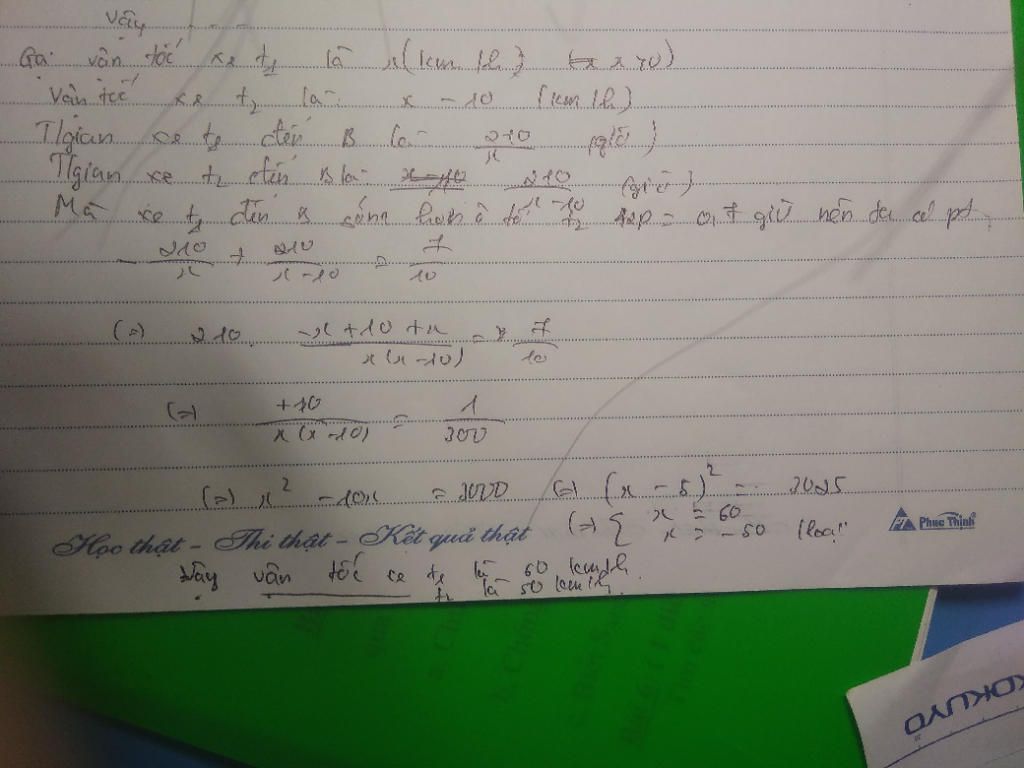 Vậy ...
Gọi vận tốc xe t1 là x (km/h) (x > 0)
Vận tốc xe t2 là: x - 10 (km/h)
T/gian xe t1 đến B là 210/x (giờ)
T/gian xe t2 đến B là: 210/(x-10) (giờ)
Mà xe t1 đến B sớm hơn ô tô t2 42p = 0,7 giờ nên ta có pt
- 210/x + 210/(x-10) = 7/10
(=) 210. (-x+10+x)/(x(x-10)) = 7/10
(=) +10/(x(x-10)) = 1/300
(=) x² - 10x = 3000 (=) (x - 5)² = 3025
(=) { x = 60
x = -50 (loại
Phuc Thịnh
Học thật - Thi thật - Kết quả thật
Vậy vận tốc xe t1 là 60 km/h
t2 là 50 km/h.
KOKUYO